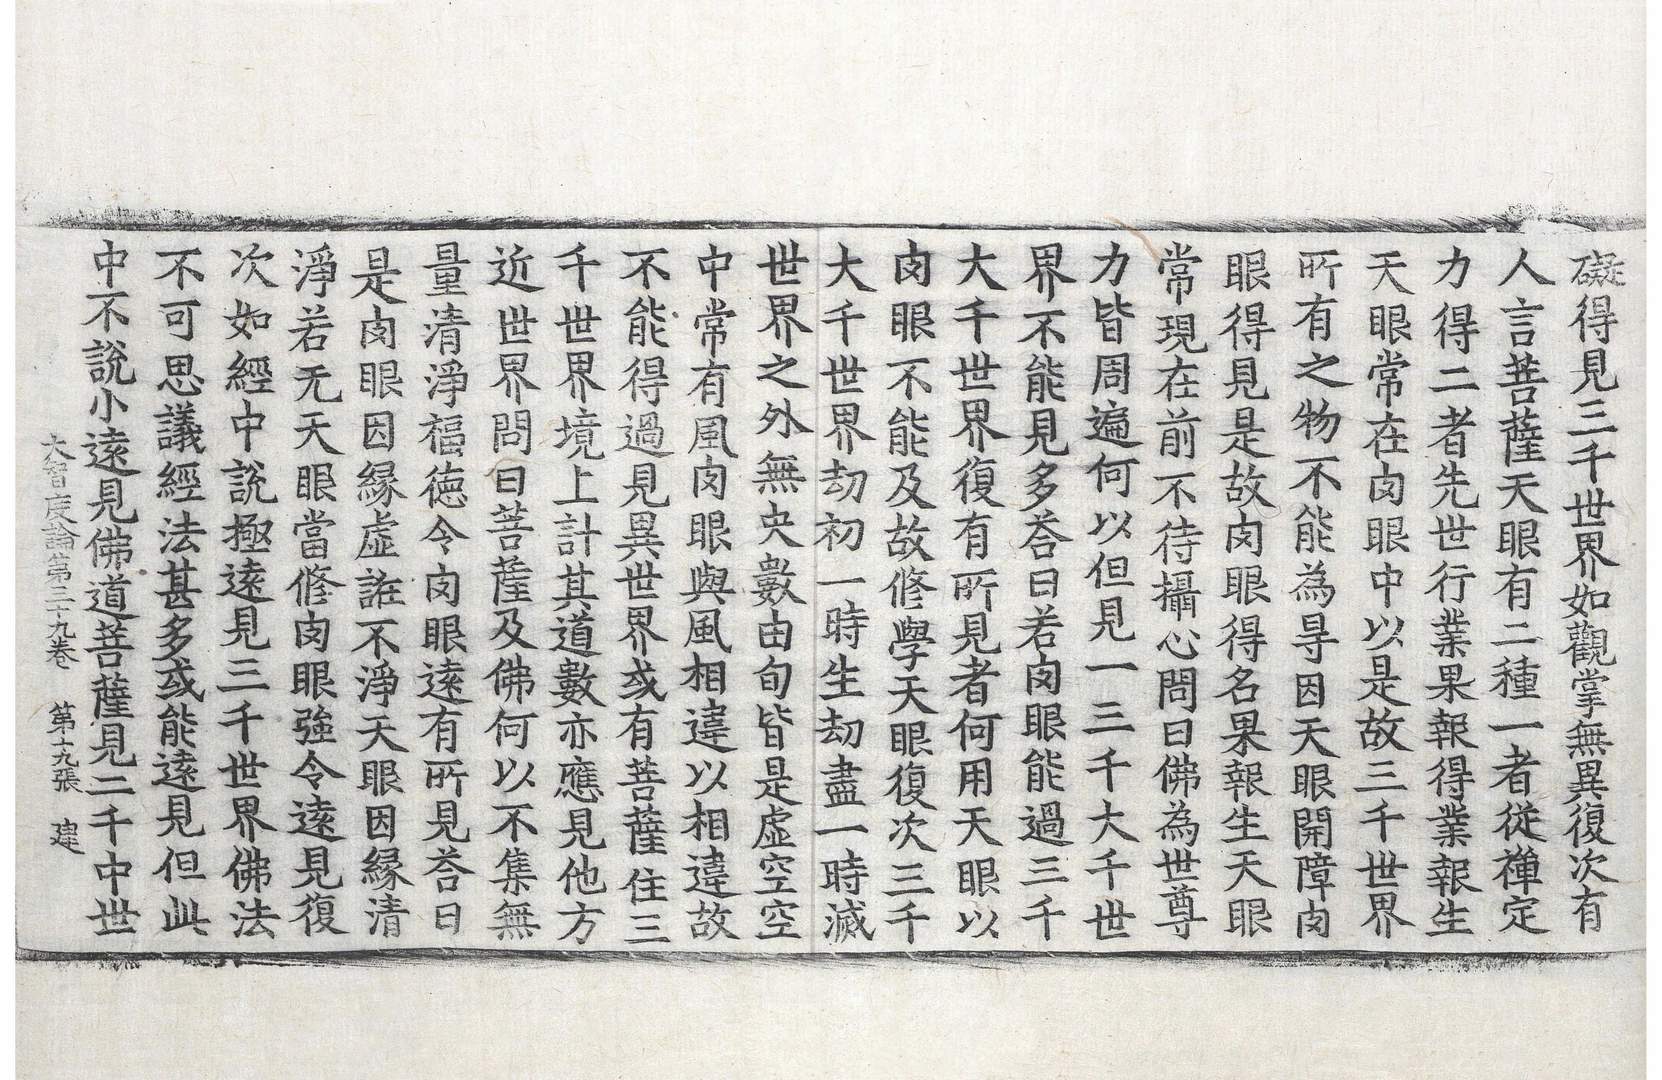 礙得見三千世界如觀掌無異復次有
人言菩薩天眼有二種一者從禪定
力得二者先世行業果報得業報生
天眼常在肉眼中以是故三千世界
所有之物不能為㝵因天眼開障肉
眼得見是故肉眼得名果報生天眼
常現在前不待攝心問曰佛為世尊
力皆周遍何以但見一三千大千世
界不能見多荅曰若肉眼能過三千
大千世界復有所見者何用天眼以
肉眼不能及故修學天眼復次三千
大千世界劫初一時生劫盡一時滅
世界之外無央數由旬皆是虛空空
中常有風肉眼與風相違以相違故
不能得過見異世界或有菩薩住三
千世界境上計其道數亦應見他方
近世界問曰菩薩及佛何以不集無
量清淨福德令肉眼遠有所見荅曰
是肉眼因緣虛誑不淨天眼因緣清
淨若无天眼當修肉眼強令遠見復
次如經中說極遠見三千世界佛法
不可思議經法甚多或能遠見但此
中不說小遠見佛道菩薩見二千中世
大智度論第三十九卷　第十九張　建